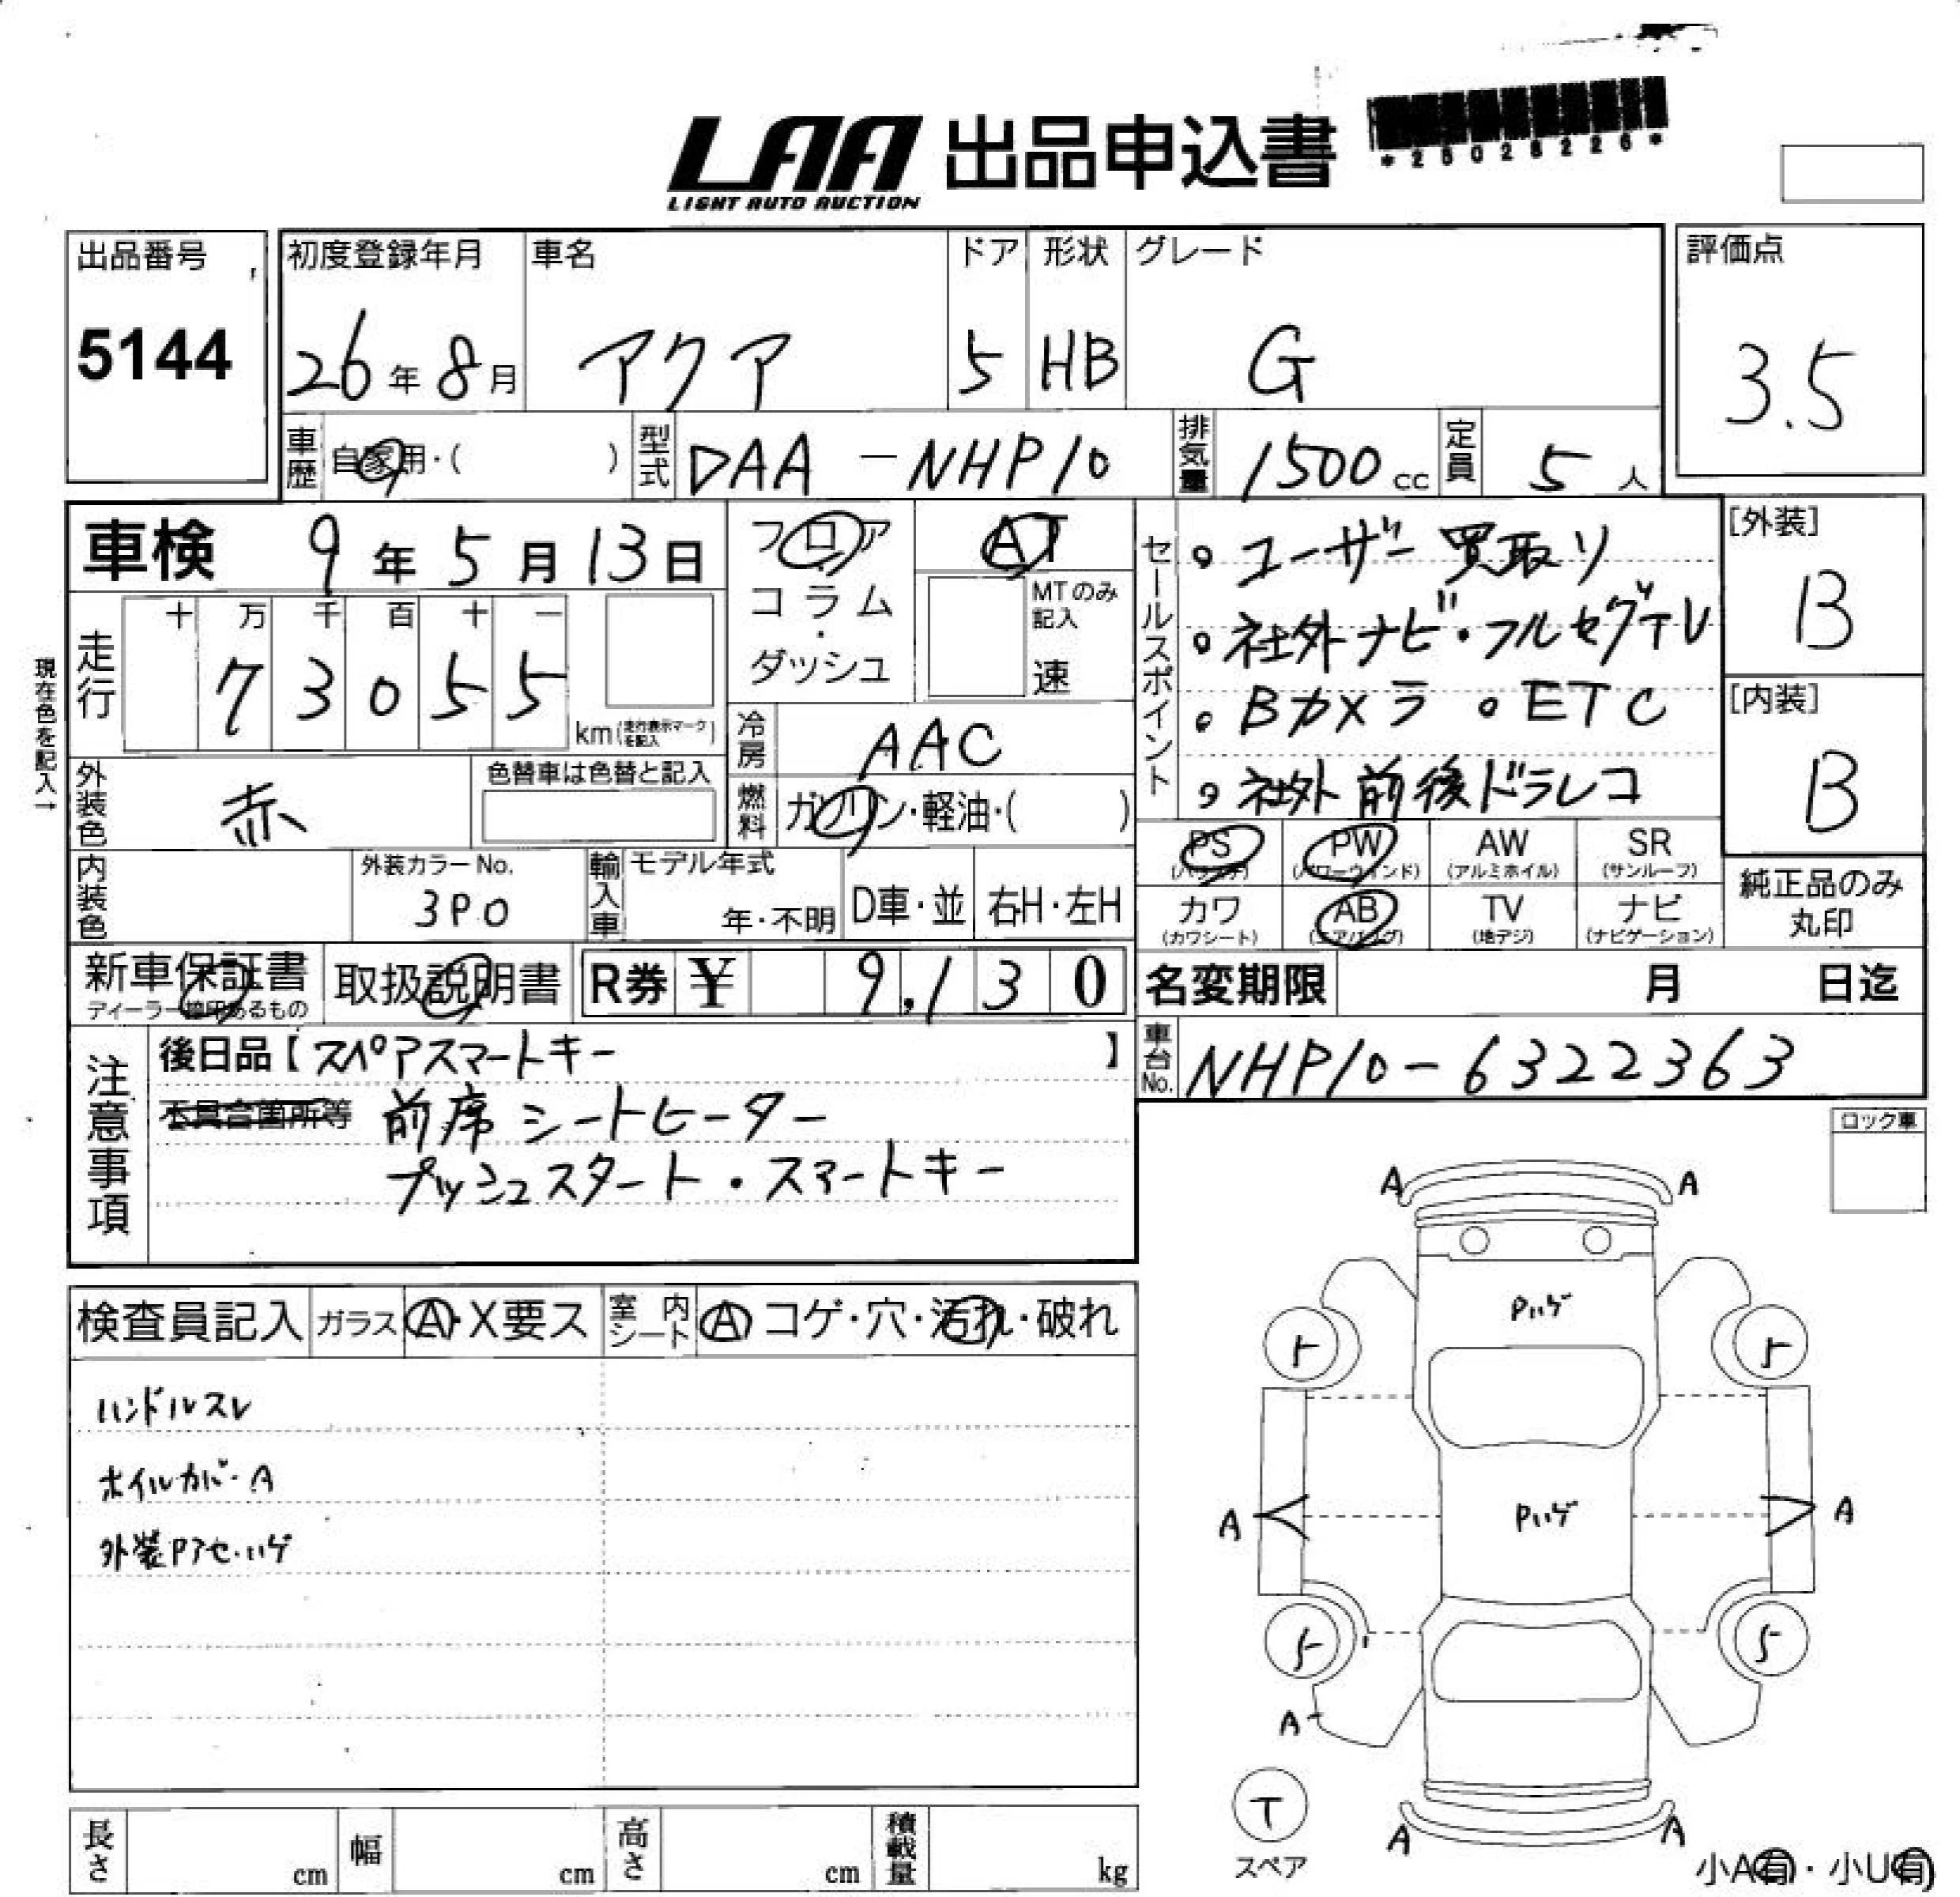 LAA 出品申込書
LIGHT AUTO AUCTION
*25028226*
出品番号
5144
初度登録年月
26年8月
車名
アクア
ドア
5
形状
HB
グレード
G
評価点
3.5
車歴 自家用・( )
型式 DAA-NHP10
排気量 1500cc
定員 5人
車検 9年5月13日
フロア
コラム
・
ダッシュ
AT
MTのみ記入
速
セールスポイント
。ユーザー買取り
。社外ナビ・フルセグTV
。Bカメラ 。ETC
。社外前後ドラレコ
[外装]
B
[内装]
B
現在色を記入→
走行
十 万 千 百 十 一
7 3 0 5 5
km(走行表示マークを記入)
冷房 AAC
外装色 赤
色替車は色替と記入
燃料 ガソリン・軽油・( )
PS (パワステ)
PW (パワーウインド)
AW (アルミホイル)
SR (サンルーフ)
カワ (カワシート)
AB (エアバッグ)
TV (地デジ)
ナビ (ナビゲーション)
純正品のみ
丸印
内装色
外装カラーNo.
3P0
輸入車
モデル年式
年・不明
D車・並
右H・左H
新車保証書
ディーラー捺印あるもの
取扱説明書
R券 ¥ 9,130
名変期限 月 日迄
車台No. NHP10-6322363
注意事項
後日品【スペアスマートキー】
不具合箇所等 前席シートヒーター
プッシュスタート・スマートキー
ロック車
検査員記入
ガラス A・X要ス
室内シート A コゲ・穴・汚れ・破れ
ハンドルスレ
ホイルカバーA
外装Pアセ・ハゲ
A A
Pハゲ
5 5
A Pハゲ A
5 5
A
T
スペア
A A
小A有・小U有
長さ cm
幅 cm
高さ cm
積載量 kg